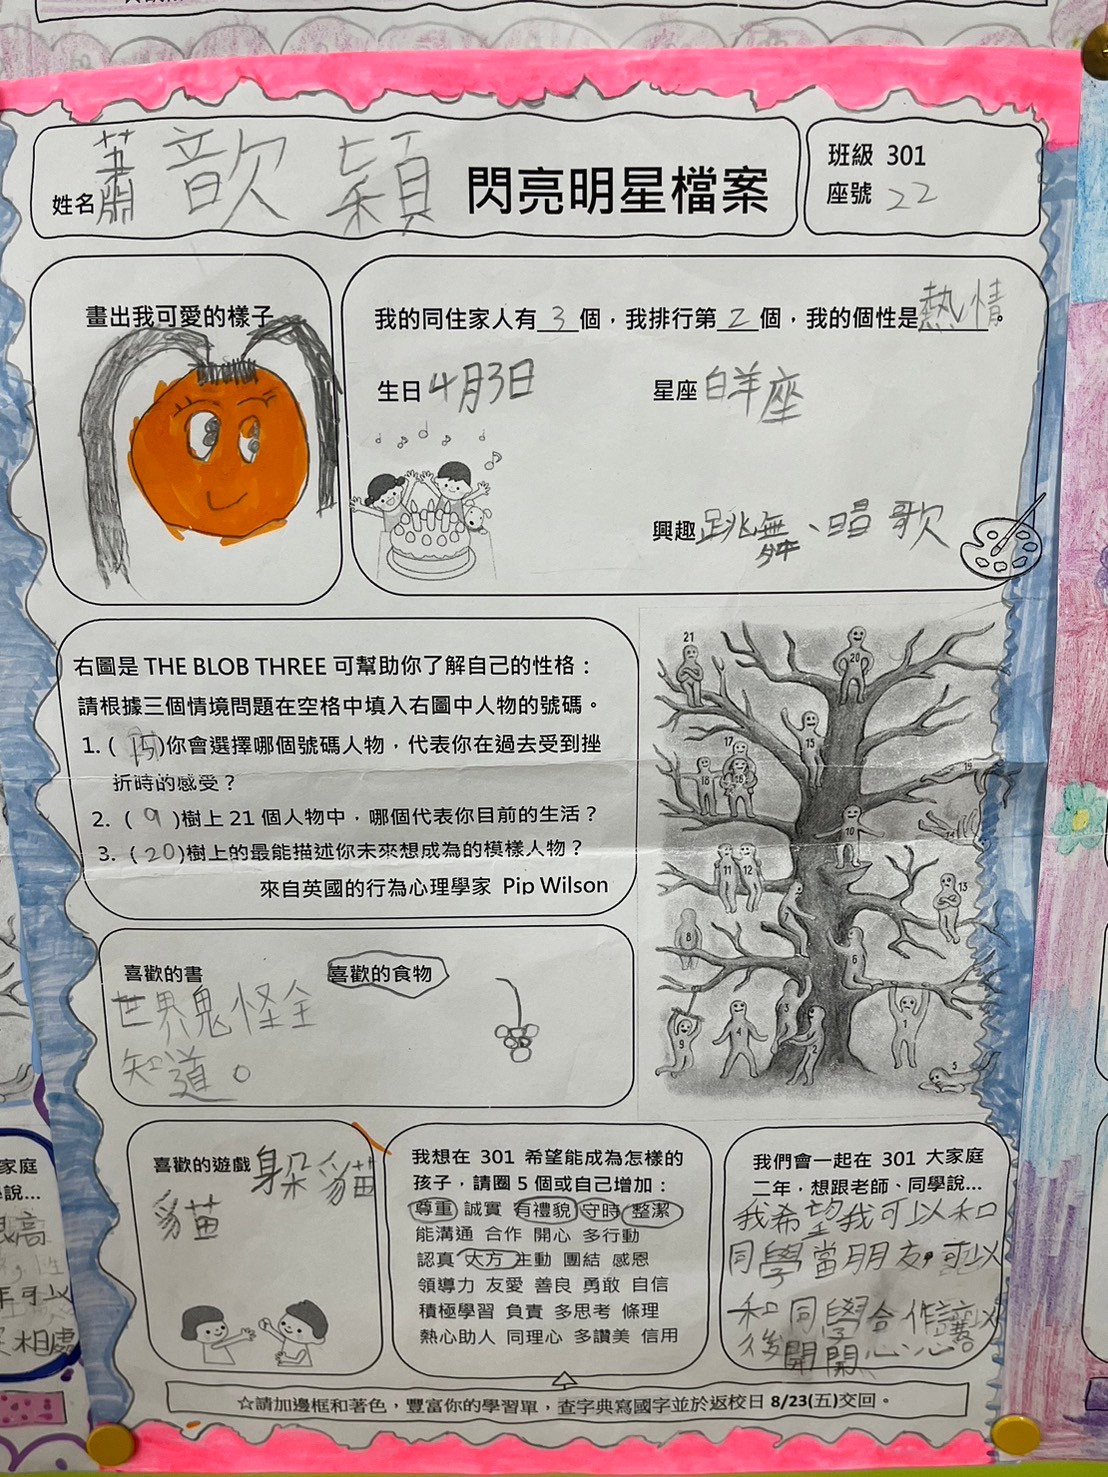 姓名蕭歆穎 閃亮明星檔案
班級 301
座號 22
畫出我可愛的樣子
我的同住家人有 3 個，我排行第 2 個，我的個性是熱情。
生日 4月3日
星座 白羊座
興趣 跳舞、唱歌
右圖是 THE BLOB THREE 可幫助你了解自己的性格：
請根據三個情境問題在空格中填入右圖中人物的號碼。
1. ( 15 )你會選擇哪個號碼人物，代表你在過去受到挫
折時的感受？
2. ( 9 )樹上 21 個人物中，哪個代表你目前的生活？
3. ( 20 )樹上的最能描述你未來想成為的模樣人物？
來自英國的行為心理學家 Pip Wilson
21
20
15
17
18
16
19
10
14
11
12
13
7
8
6
9
4
3
2
1
5
喜歡的書
世界鬼怪全
知道。
喜歡的食物
喜歡的遊戲 躲貓
貓
我想在 301 希望能成為怎樣的
孩子，請圈 5 個或自己增加：
尊重 誠實 有禮貌 守時 整潔
能溝通 合作 開心 多行動
認真 大方 主動 團結 感恩
領導力 友愛 善良 勇敢 自信
積極學習 負責 多思考 條理
熱心助人 同理心 多讚美 信用
我們會一起在 301 大家庭
二年，想跟老師、同學說...
我希望我可以和
同學當朋友，可以
和同學合作讓以
後開開心心。
☆請加邊框和著色，豐富你的學習單，查字典寫國字並於返校日 8/23(五)交回。
家庭
說...
相處